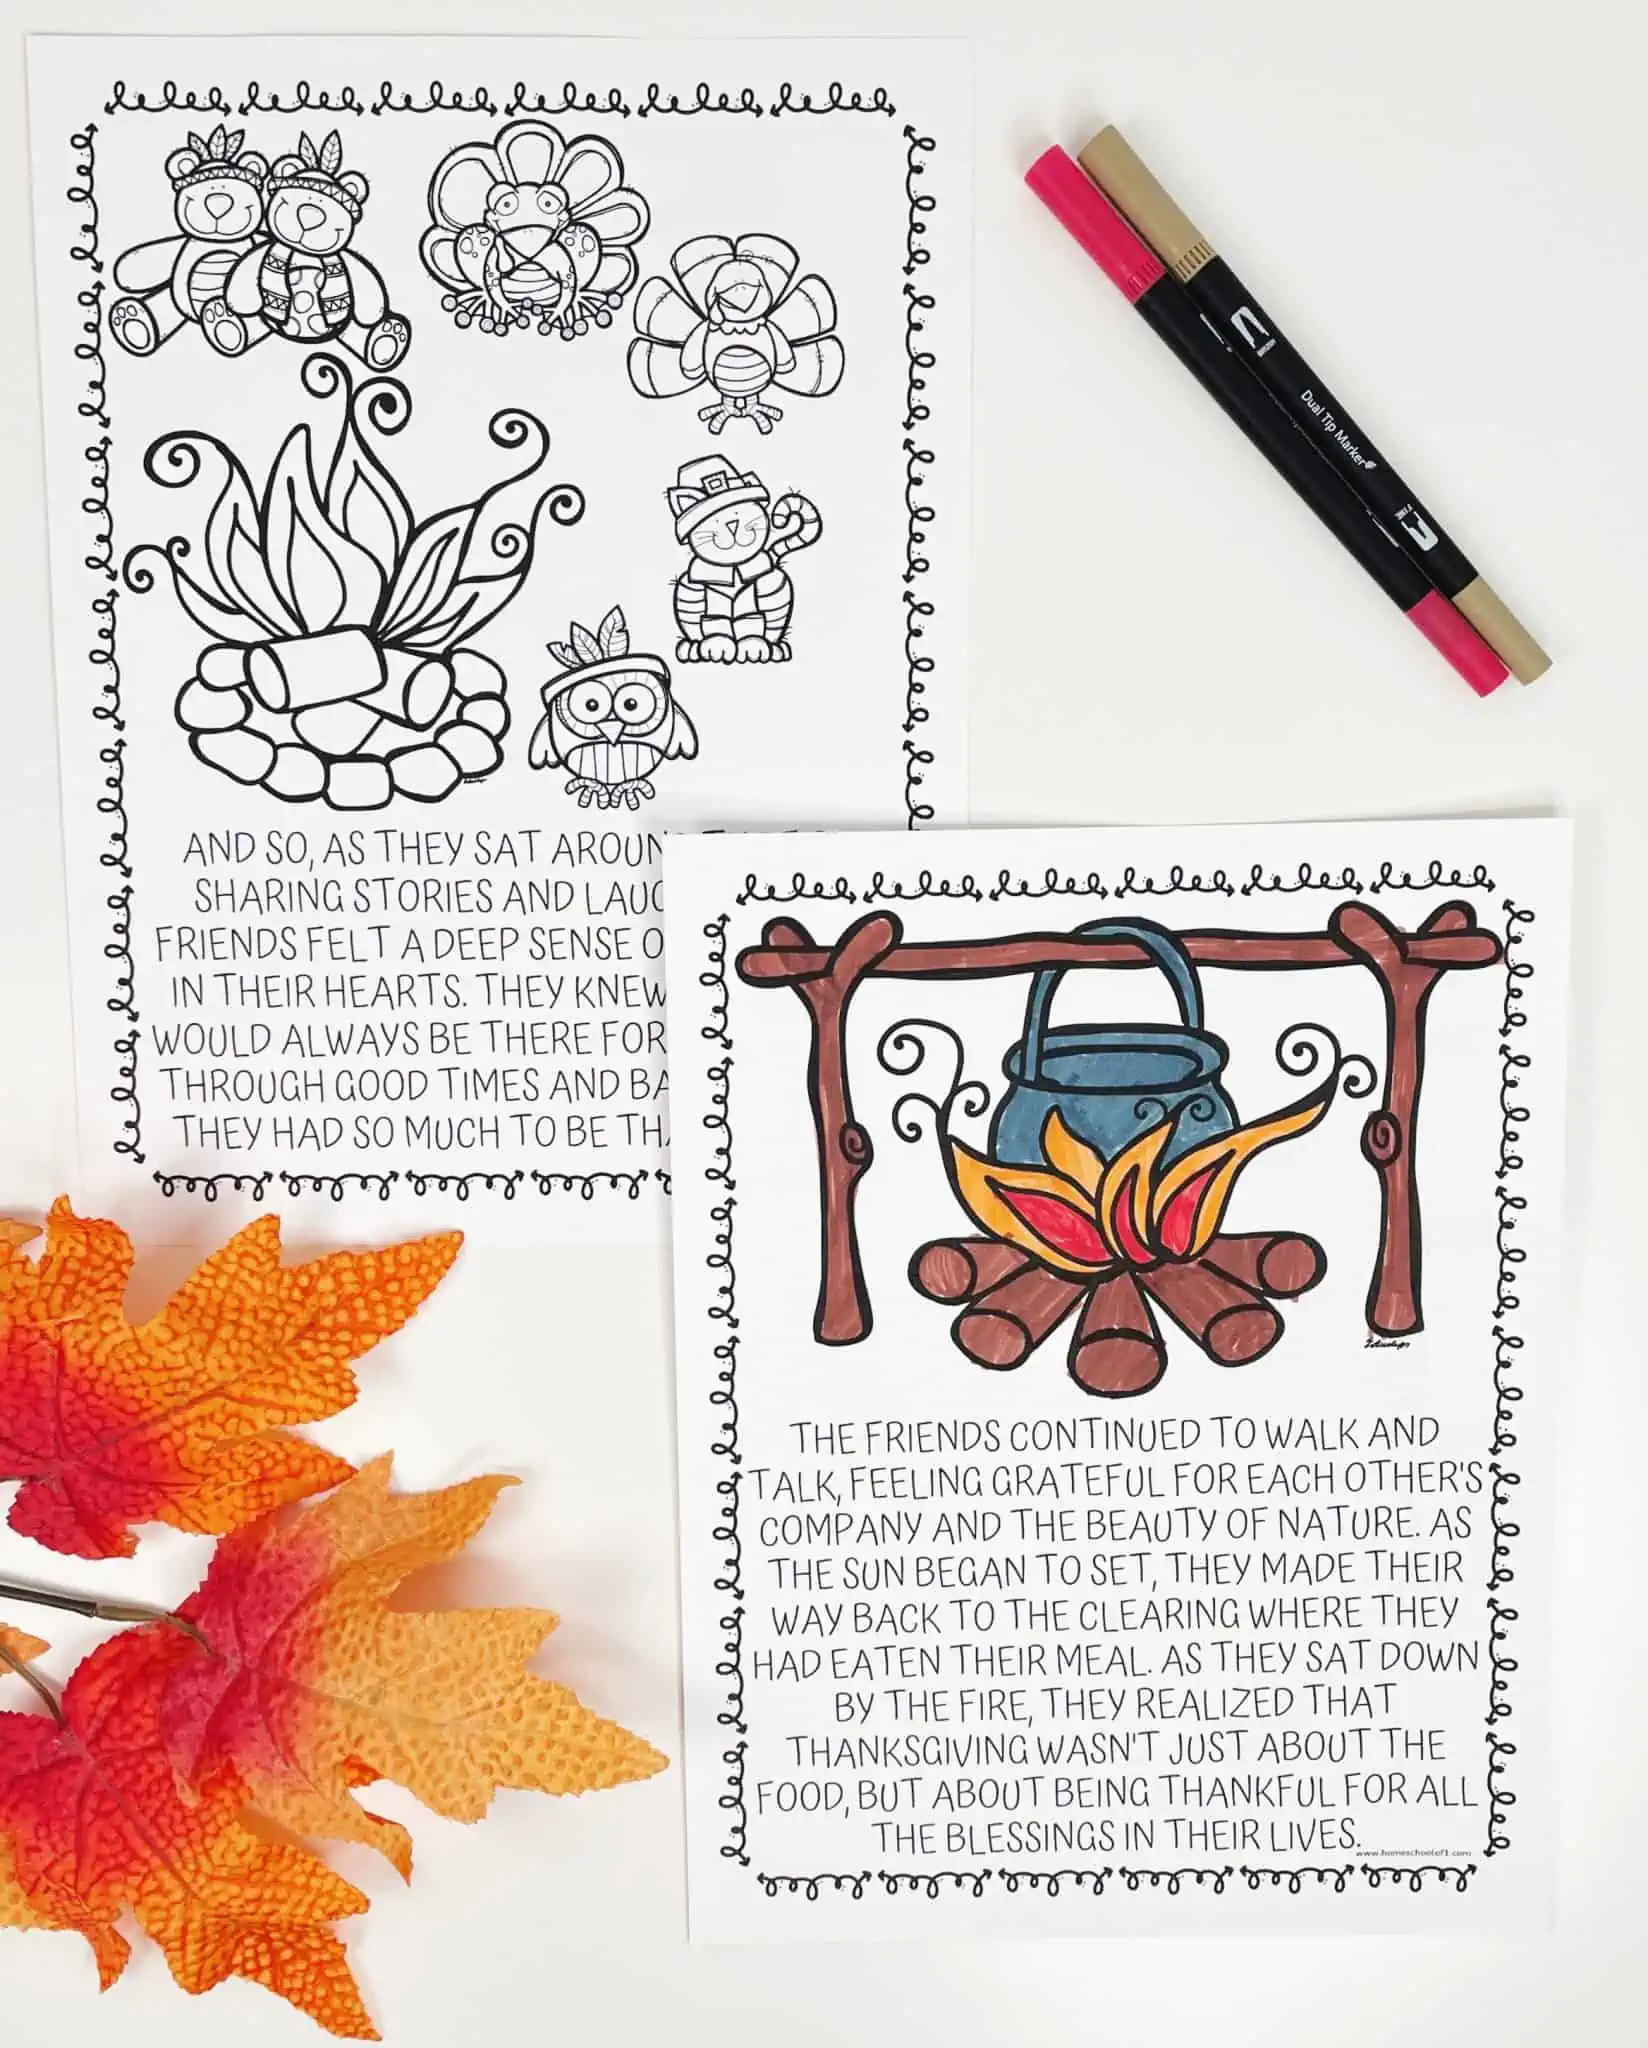 AND SO, AS THEY SAT AROUN
SHARING STORIES AND LAUG
FRIENDS FELT A DEEP SENSE O
IN THEIR HEARTS. THEY KNEW
WOULD ALWAYS BE THERE FOR
THROUGH GOOD TIMES AND BA
THEY HAD SO MUCH TO BE THA
Dual Tip Marker
THE FRIENDS CONTINUED TO WALK AND
TALK, FEELING GRATEFUL FOR EACH OTHER'S
COMPANY AND THE BEAUTY OF NATURE. AS
THE SUN BEGAN TO SET, THEY MADE THEIR
WAY BACK TO THE CLEARING WHERE THEY
HAD EATEN THEIR MEAL. AS THEY SAT DOWN
BY THE FIRE, THEY REALIZED THAT
THANKSGIVING WASN'T JUST ABOUT THE
FOOD, BUT ABOUT BEING THANKFUL FOR ALL
THE BLESSINGS IN THEIR LIVES.
www.homeschoolof1.com